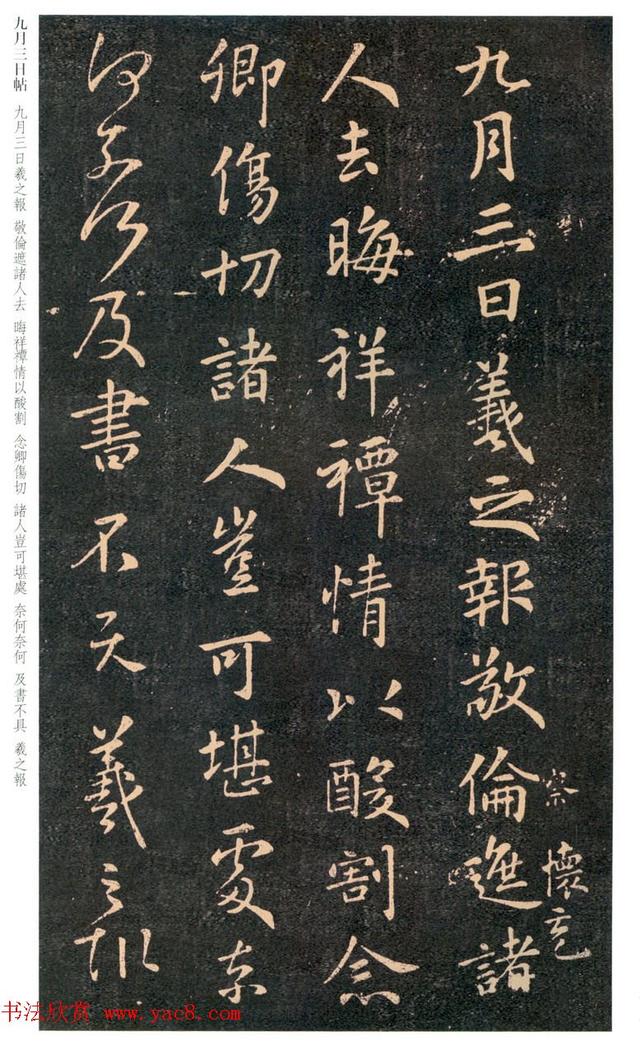 察 懷充
九月三日羲之報敬倫遮諸
人去晦祥禫情以酸割念
卿傷切諸人豈可堪處奈
何奈何及書不具羲之報
九月三日帖 九月三日羲之報 敬倫遮諸人去 晦祥禫情以酸割 念卿傷切 諸人豈可堪處 奈何奈何 及書不具 羲之報
书法欣赏 www.yac8.com